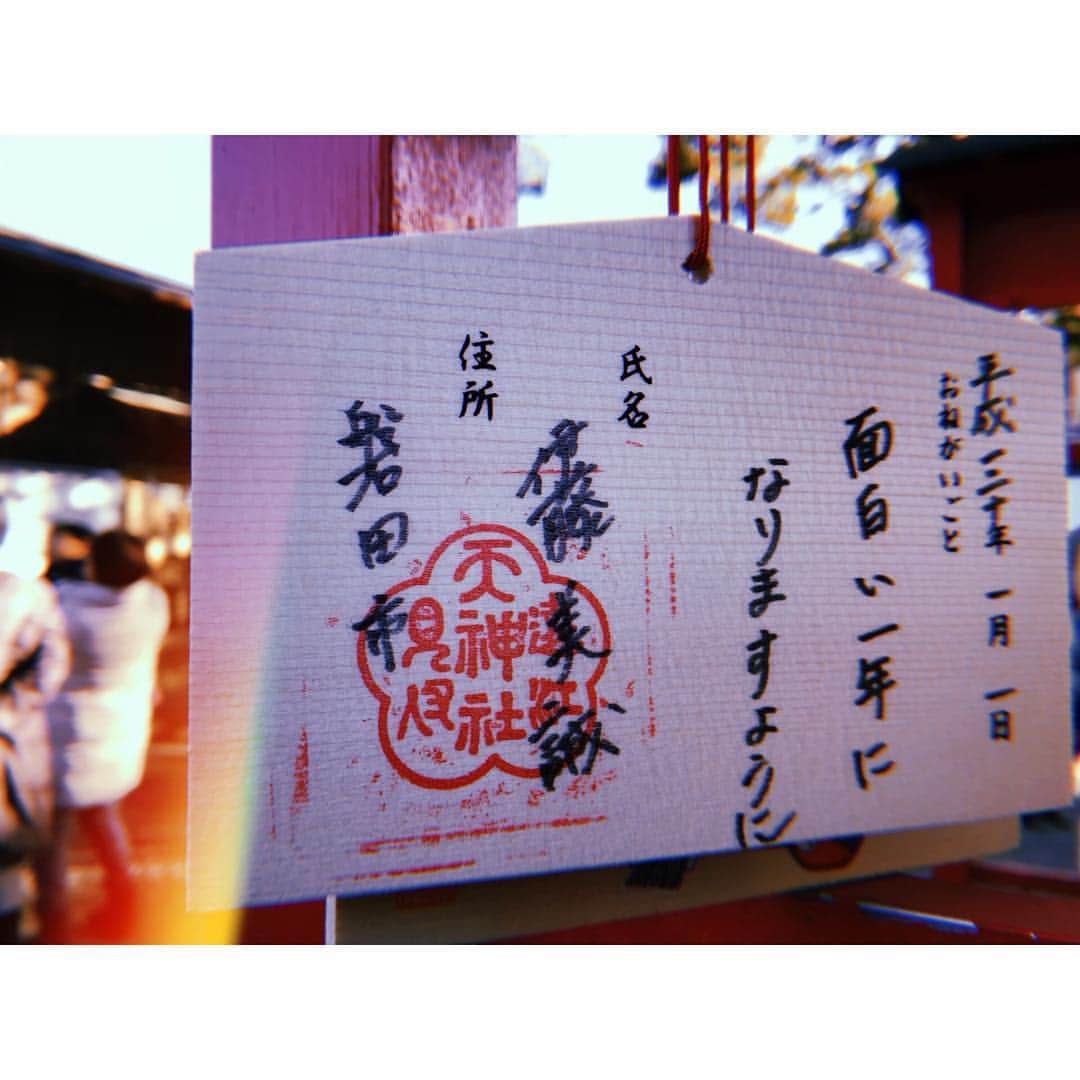 平成三十年 一月 一日
おねがいごと
面白い一年に
なりますように
氏名
伊藤 美誠
住所
磐田市
天
見 神
社